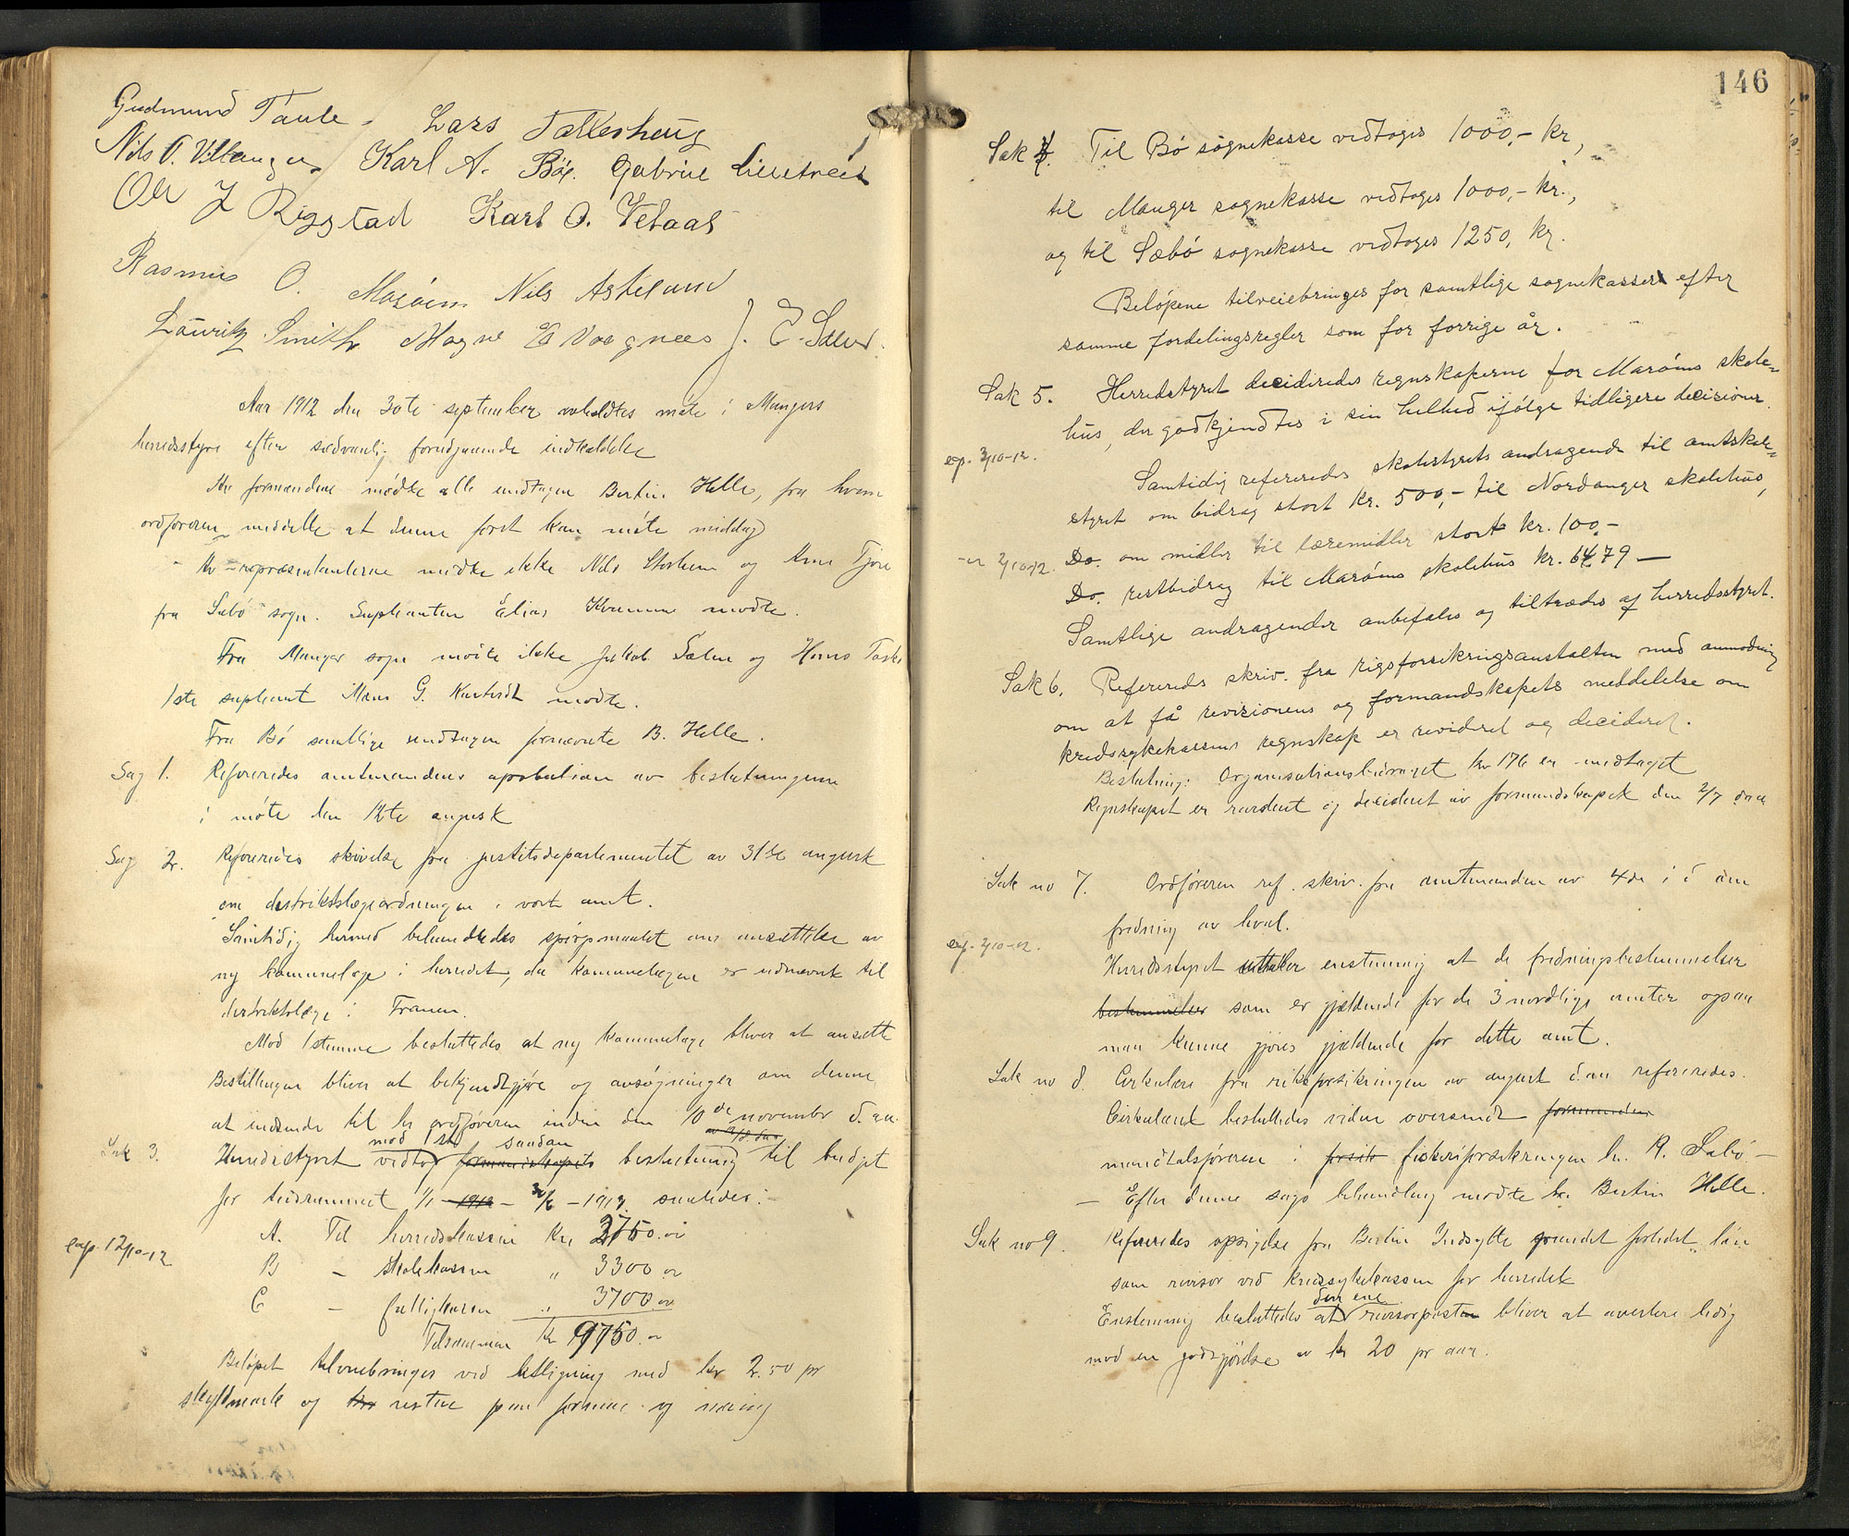 Gudmund Taule. Lars Talleshaug
Nils O. Villanger. Karl A. Bøe. Gabriel
Ole J Rigstad Karl O. Vetaas
Rasmus O. Marøen Nils Askelund
Lauritz Smith Magne E Vaagnees J. E. Sæle
Aar 1912 den 30te september avholdtes møte i Mangers
herredsstyre efter sedvanlig forutgaaende indkaldelse
Av formændene mødte alle undtagen Bertin Helle, fra hvem
ordføreren meddelte at denne først kan møte middag
Av repræsentanterne mødte ikke Nils Storheim og Arne Tjore
fra Sæbø sogn. Suplianten Elias Kvamme mødte.
Fra Manger sogn møtte ikke Jakob Sæle og Hans
1ste supliant Mons G. mødte.
Fra Bø samtlige undtagen fornævnte B. Helle.
Sag 1. Refereredes amtmandens aprobation av beslutningerne
i møte den 12te august
Sag 2. Refereredes skrivelse fra justitsdepartementet av 31te august
om distriktslægeordningen i vort amt.
Samtidig hermed behandledes spørgsmaalet om ansættelse av
ny kommunelæge i herredet, da kommunelægen er utnævnt til
distriktslæge i Framen.
Mod 1 stemme besluttedes at ny kommunelæge bliver at ansætte
Bestillingen bliver at bekjendtgjøre og ansøgninger om denne
at indsende til hr ordføreren inden den 10de november d. aa.
Sak 3. Herredsstyret vedtog mod 1 st saadan formandskapets beslutning til budget
for tidsrummet 1/1 1913 - 30/6 - 1913 saaledes:
exp. 12/10-12
A. Til herredskassen Kr 2750.00
B - skolekassen " 3300 00
C - fattigkassen " 3700 00
Tilsammen Kr 9750.00
Beløpet tilveiebringes ved utligning med kr 2.50 pr
skyldmark og resten paa formue og næring
146
Sak 4. Til Bø sognekasse vedtoges 1000,- kr,
til Manger sognekasse vedtoges 1000,- kr.,
og til Sæbø sognekasse vedtoges 1250, kr.
Beløpene tilveiebringes for samtlige sognekasser efter
samme fordelingsregler som for forrige år.
Sak 5. Herredstyret decideredes regnskaperne for Marøens skole-
hus, der godkjendtes i sin helhed ifølge tidligere decisioner.
exp. 3/10-12.
Samtidig refereredes skolestyrets andragende til amtskole-
styret om bidrag stort kr. 500,- til Nordanger skolehus,
Do. om midler til læremidler stort kr. 100,-
2/10-12. Do. restbidrag til Marøens skolehus kr. 64,79 —
Samtlige andragender anbefales og tiltrædes af herredsstyret.
Sak 6. Refereredes skriv. fra rigsforsikringsanstalten med anmodning
om at få revisionens og formandskapets meddelelse om
kredssykekassens regnskap er revideret og decideret.
Beslutning: Organisationsbidraget kr 176 er mottaget
Regnskapet er revidert og decidert av formandskapet den 2/7 d aa
Sak no 7. Ordføreren ref. skriv. fra amtmanden av 4de i d om
fredning av hval.
exp. 2/10-12.
Herredsstyret uttaler enstemmig at de fredningsbestemmelser
bestemmelser som er gjældende for de 3 nordlige amter ogsaa
maa kunne gjøres gjældende for dette amt.
Sak no 8. Cirkulære fra riksforsikringen av august d. aa refereredes.
Cirkulæret besluttedes videre oversendt formanden
mandtalsføreren i forsik fiskeriforsikringen hr. R. Sæbø —
— Efter denne sags behandling mødte hr. Bertin Helle.
Sak no 9. Refereredes opsigelse fra Bertin Indsytte grundet forledet løn
som revisor ved kredssykekassen for herredet
Enstemmig besluttedes at den ene revisorposten bliver at avertere ledig
mod en godtgjørelse av kr 20 pr aar.